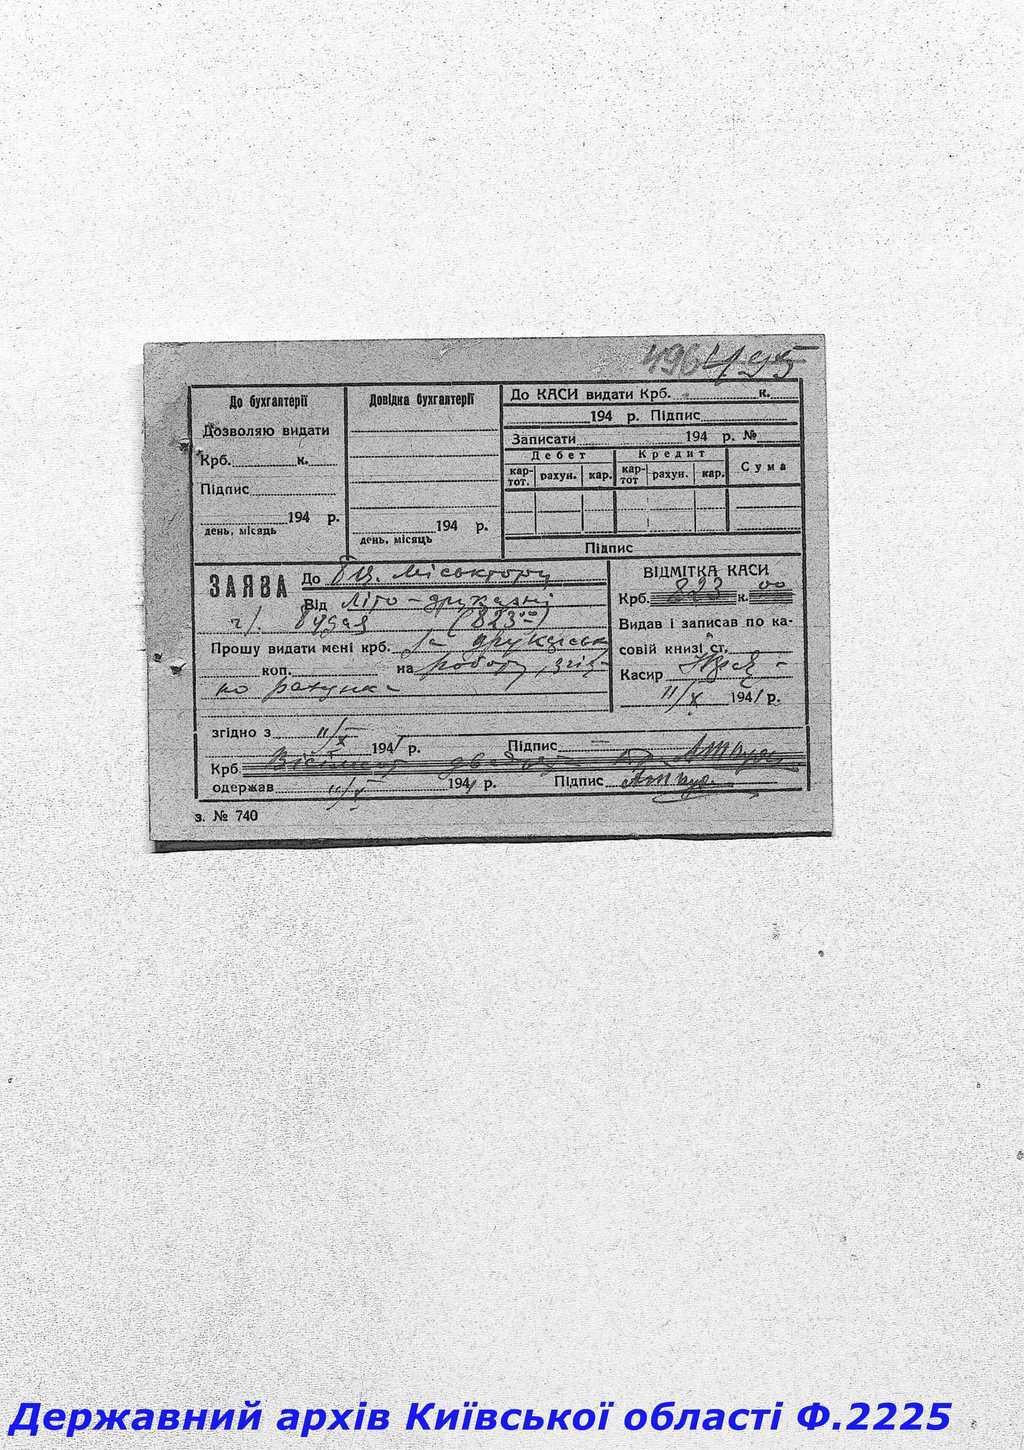 496 495
До бухгалтерії
Дозволяю видати
Крб. к.
Підпис
194 р.
день, місяць
Довідка бухгалтерії
194 р.
день, місяць
До КАСИ видати Крб. к.
194 р. Підпис
Записати 194 р. №
Дебет Кредит Сума
кар-тот. рахун. кар. кар-тот рахун. кар.
Підпис
ЗАЯВА До Бц. Міськторгу
Від Літо-друкарні
(823⁰⁰)
Прошу видати мені крб. за друкарськ
коп. на роботу, згід-
но рахунка
ВІДМІТКА КАСИ
Крб. 823 к. 00
Видав і записав по ка-
совій книзі ст.
Касир
11/X 1941 р.
згідно з 11/X 1941 р. Підпис
Крб. Вісімсот двадцять
одержав 11/X 1941 р. Підпис
з. № 740
Державний архів Київської області Ф.2225